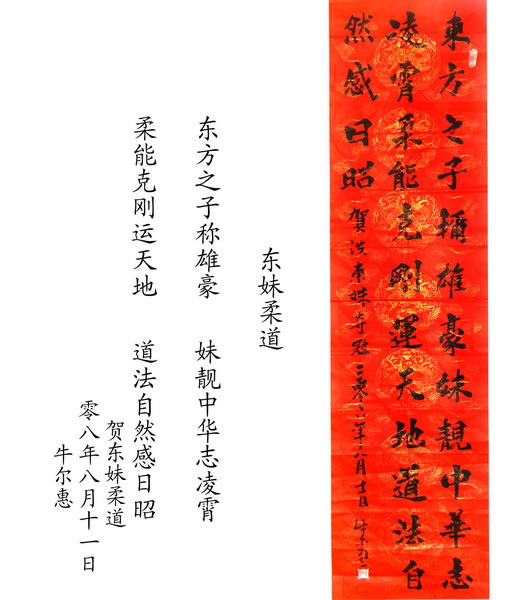 東方之子稱雄豪妹靚中華志
凌霄柔能克剛運天地道法自
然感日昭
賀冼東妹夺冠 年八月十一日
东妹柔道
东方之子称雄豪 妹靓中华志凌霄
柔能克刚运天地 道法自然感日昭
贺东妹柔道
零八年八月十一日
牛尔惠